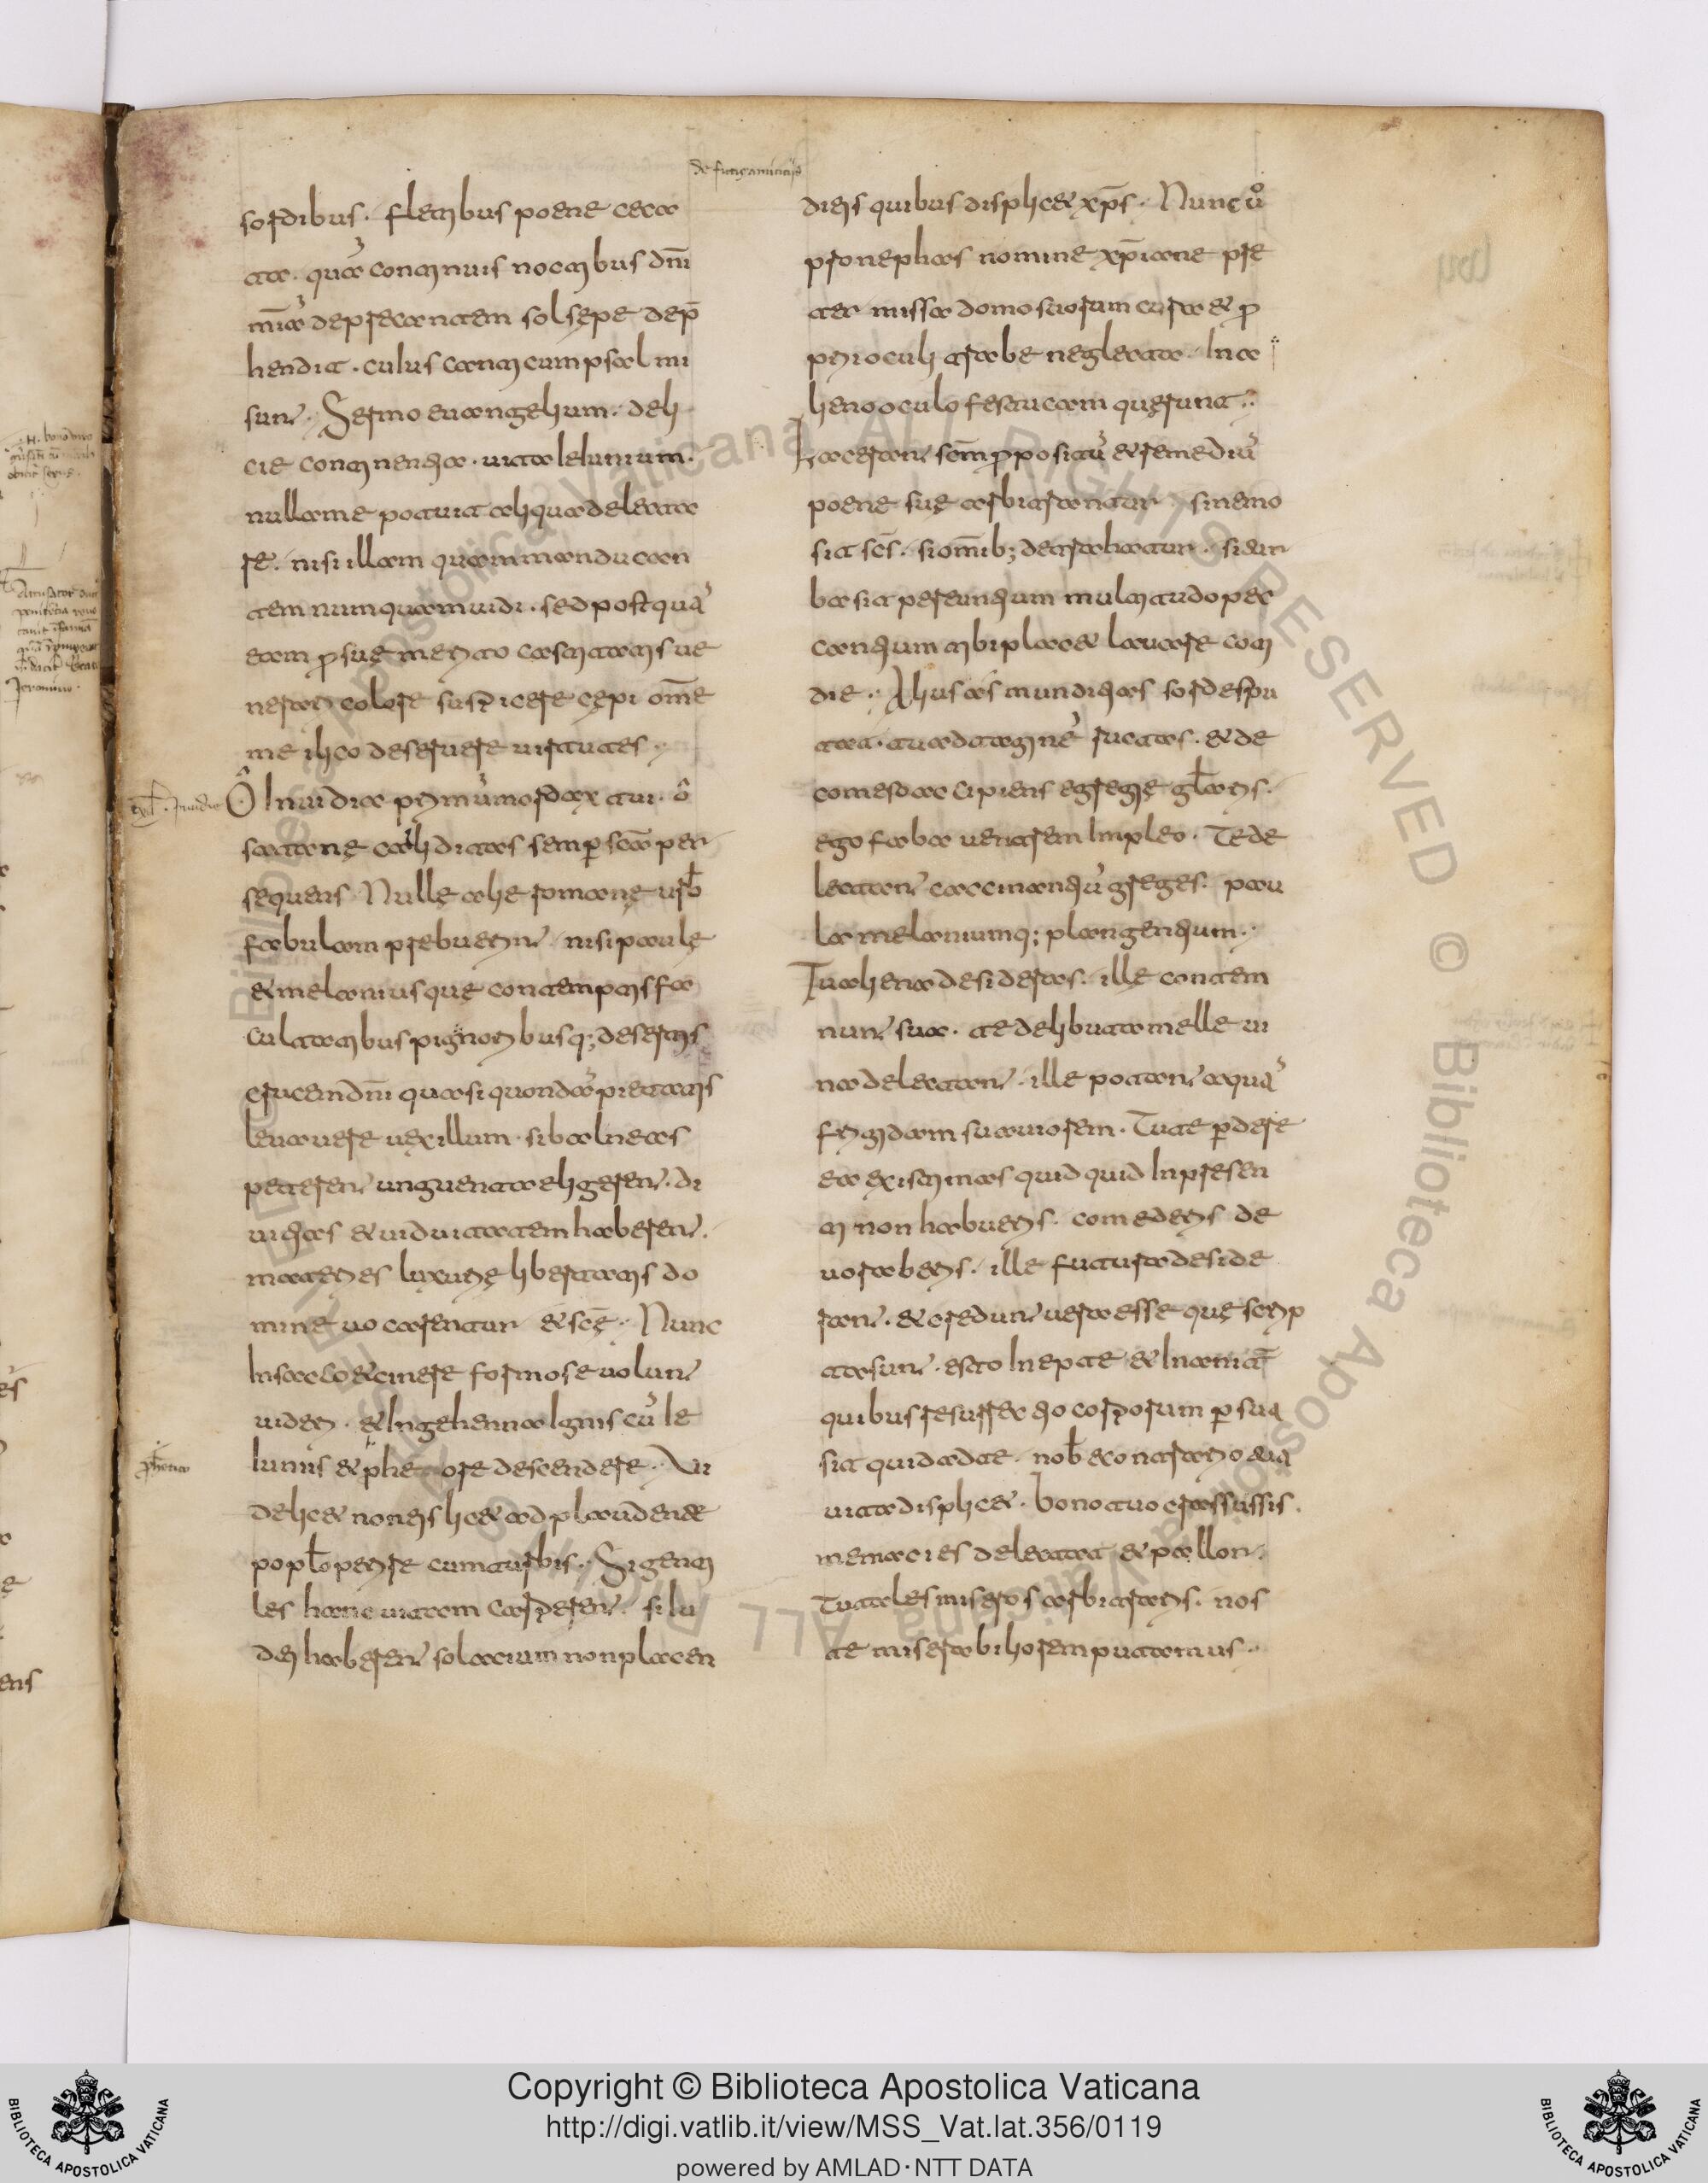 de fictis amicitiis
sordibus. fletibus poene ceca
ta. quā continuis noctibus dn̄i
mīam deprecantem sol sępe dep̄
hendit. cuius canticum psalmi
sunt. Sermo euangelium. deli
cię continentia. uita Ieiunium.
nulla me potuit alia quae delecta
re. nisi illam quam manducan
tem numquam uidi. sed postquā
eam ꝑ suę merito castitatis ue
nerari colere suspicere cępi om̄e
me ilico deseruere uirtutes.
Ô Inuidia primū mordax tui. ô
satanę calliditas semp̄ scā per
sequens. Nullę alię romanę urb̄
fabulam prebuerunt. nisi paulę
& melanius quę contemptis fa
cultatibus pignoribusq; desertis
crucem dn̄i quasi quondā pietatis
leuauere uexillum. si balneas
peterent. unguenta eligerent. di
uitias & uiduitatem haberent.
materies luxurię libertatis do
mine uocarentur & scē. Nunc
In sacco & cinere formose uolunt
uideri. & In gehenna Ignis cū Ie
iuniis & phetore descendere. Ui
delicet non eis licet ad plaudente
poplo perire cum turbis. Si genti
les hanc uitam carperent. si Iu
dei haberent solatium non placen
di eis quibus displicet xp̄s. Nunc ū
pro nephas nomine xp̄iane pre
ter missa domo suorum cura & ꝓ
prii oculi trabe neglecta. In a
lieno oculo festucam querunt.
Lacerant scm̄ ꝓpositū & remediū
poene suę arbitrantur. si nemo
sit scs̄. si omib; detrahatur. si tur
ba sit pereuntium multitudo pec
cantium tibi placet lauare coti
die. Alius has munditias sordes pu
tat. tu ad atagine ructas. & de
comesto accipiens egregię glarias.
ego faba uentrem Impleo. Te de
lectant cacinantiū greges. pau
la melaniumq; plangentium.
Tu aliena desideras. illę contem
nunt sua. te delibuta melle ui
na delectant. ille potant aquā
frigidam suauiorem. Tu te ꝑdere
ea existimas quid quid In presen
ti non habueris. comederis de
uoraberis. ille futura deside
rant. & credunt uera esse quę scrip
ta sunt. esto Inepte & Inanit̄
quibus resurrectio corporum ꝑ sua
sit quid ad te. nob̄ econtrario tua
uita displicet. bono tuo crassus sis.
me macies delectat & pallor.
Tu tales miseros arbitraris. nos
te miserabiliorem putamus.
Copyright © Biblioteca Apostolica Vaticana
http://digi.vatlib.it/view/MSS_Vat.lat.356/0119
powered by AMLAD·NTT DATA